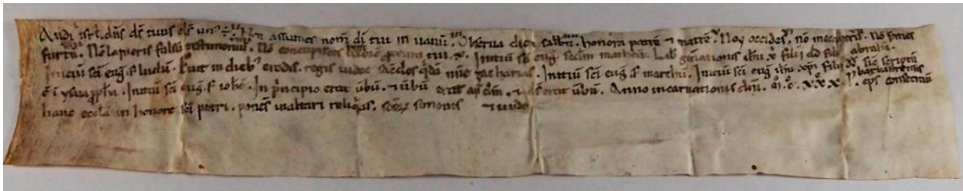 Audi isrl. dns ds tuus ds unus est. Non assumes nom di tui in uanum. Obserua diem sabbati. honora patrem & matrem. Non occides. nō mecaberis. Nō facies
furtum. Nō loqueris falsū testimoniū. Nō concupisces proximi tui. Initiū sci eug. scdm matheū. Lib generationis ihu x filii dd filii abraham.
Initiū sci eug. s. lucham. Fuit in dieb; erodis. regis iudee sacdos qdā nōie zacharias. Initiū sci eug. s. marchū. Initiū sci eug. ihu xpi filii di. sic scriptū
ē i ysaia ppha. Initiū sci eug. s. iohē. In principio erat ūbū. & ūbū erat ap dm. & ds erat ūbū. Anno incarnationis dni. M. C. XXX. eps consecrauit
hanc ecclam in honore sci petri. ponens in altari reliquias. scor simonis & iude